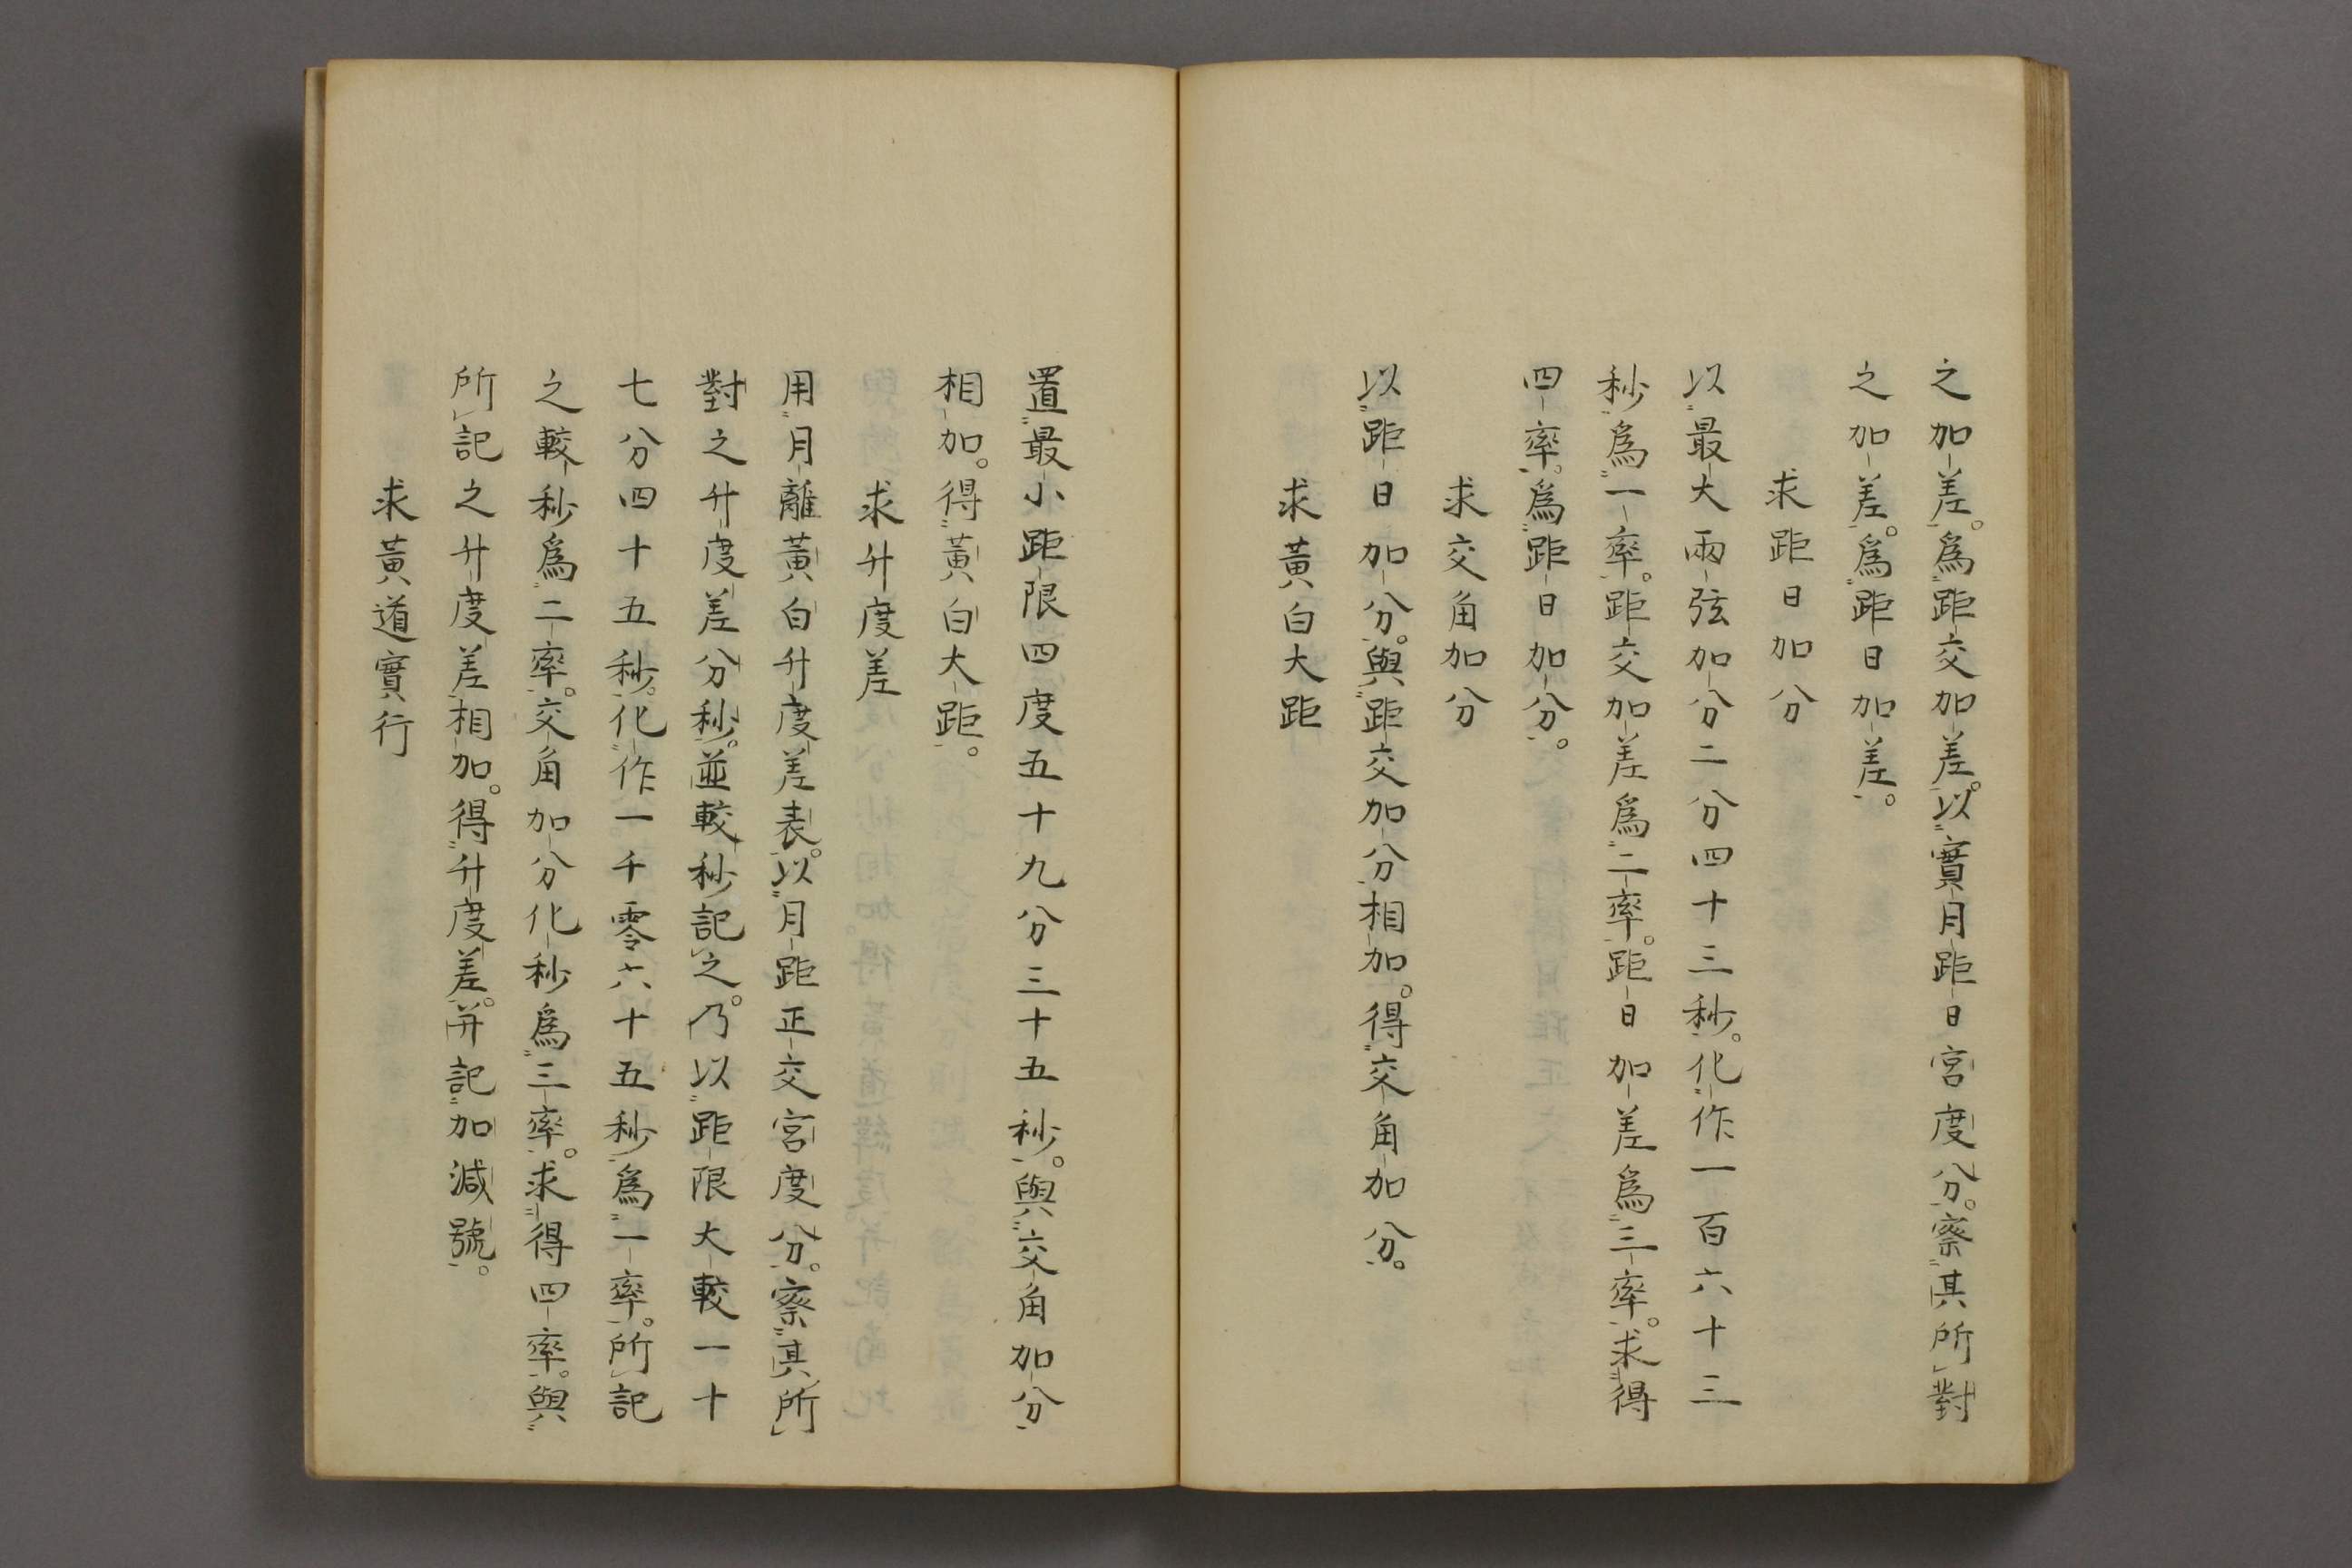 之加差。爲距交加差。以實月距日宮度分。察其所對
之加差。爲距日加差。
求距日加分
以最大兩弦加分二分四十三秒。化作一百六十三
秒爲一率。距交加差爲二率。距日加差爲三率。求得
四率。爲距日加分。
求交角加分
以距日加分。與距交加分相加。得交角加分。
求黃白大距
置最小距限四度五十九分三十五秒。與交角加分
相加。得黃白大距。
求升度差
用月離黃白升度差表。以月距正交宮度分。察其所
對之升度差分秒。並較秒記之。乃以距限大較一十
七分四十五秒。化作一千零六十五秒爲一率。所記
之較秒爲二率。交角加分化秒爲三率。求得四率。與
所記之升度差相加。得升度差。并記加減號。
求黃道實行